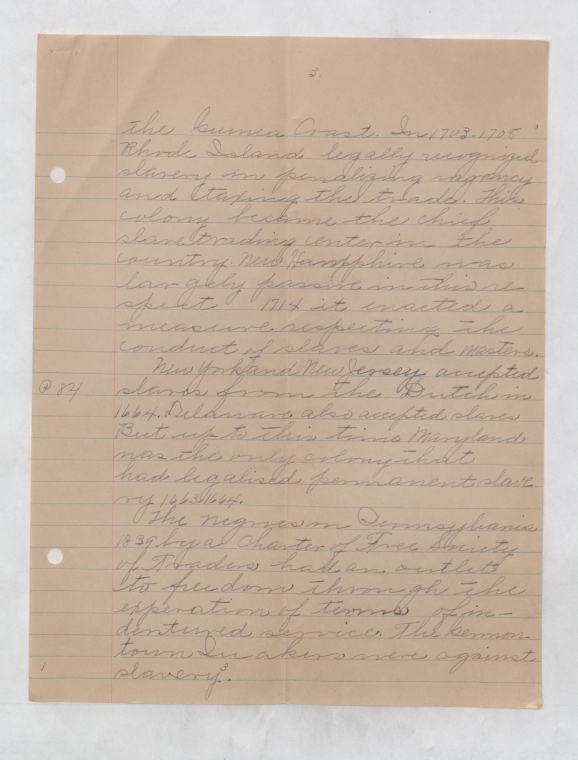 3.
the Guinea Coast. In 1703-1708
Rhode Island legally recognized
slavery in penalizing vagrancy
and taxing the trade. This
colony became the chief
slave trading center in the
country. New Hampshire was
largely passive in this re
spect 1714 it enacted a
measure respecting the
conduct of slaves and masters.
New York and New Jersey accepted
@ 84 slaves from the Dutch in
1664. Delaware also accepted slaves
But up to this time Maryland
was the only colony that
had legalised permanent slave
ry 1663, 1664.
The negroes in Pennsylvania
by a Charter of Free Society
of Traders had an outlet
to freedom through the
experation of terms of in-
dentured service. The
town were against
slavery3.